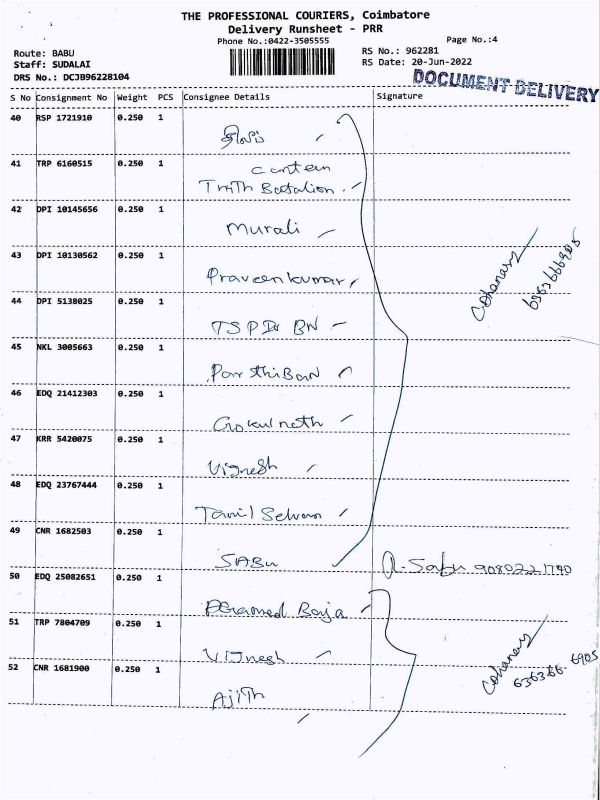 THE PROFESSIONAL COURIERS, Coimbatore
Delivery Runsheet - PRR
Phone No.:0422-3505555
Page No.:4
Route: BABU
RS No.: 962281
Staff: SUDALAI
RS Date: 20-Jun-2022
DRS No.: DCJB96228104
DOCUMENT DELIVERY
S No Consignment No Weight PCS Consignee Details Signature
40 RSP 1721910 0.250 1
41 TRP 6160515 0.250 1 canteen
Batalion
42 DPI 10145656 0.250 1 Murali
43 DPI 10130562 0.250 1 Praveenkumar
44 DPI 5138025 0.250 1 TSP BN
45 NKL 3005663 0.250 1 ParthiBan
46 EDQ 21412303 0.250 1 Gokulnath
47 KRR 5420075 0.250 1 Vignesh
48 EDQ 23767444 0.250 1 Tamil Selvan
49 CNR 1682503 0.250 1 SABu R. Sabu
50 EDQ 25082651 0.250 1 Raja
51 TRP 7804709 0.250 1 VIJnesh
52 CNR 1681900 0.250 1 AjITh